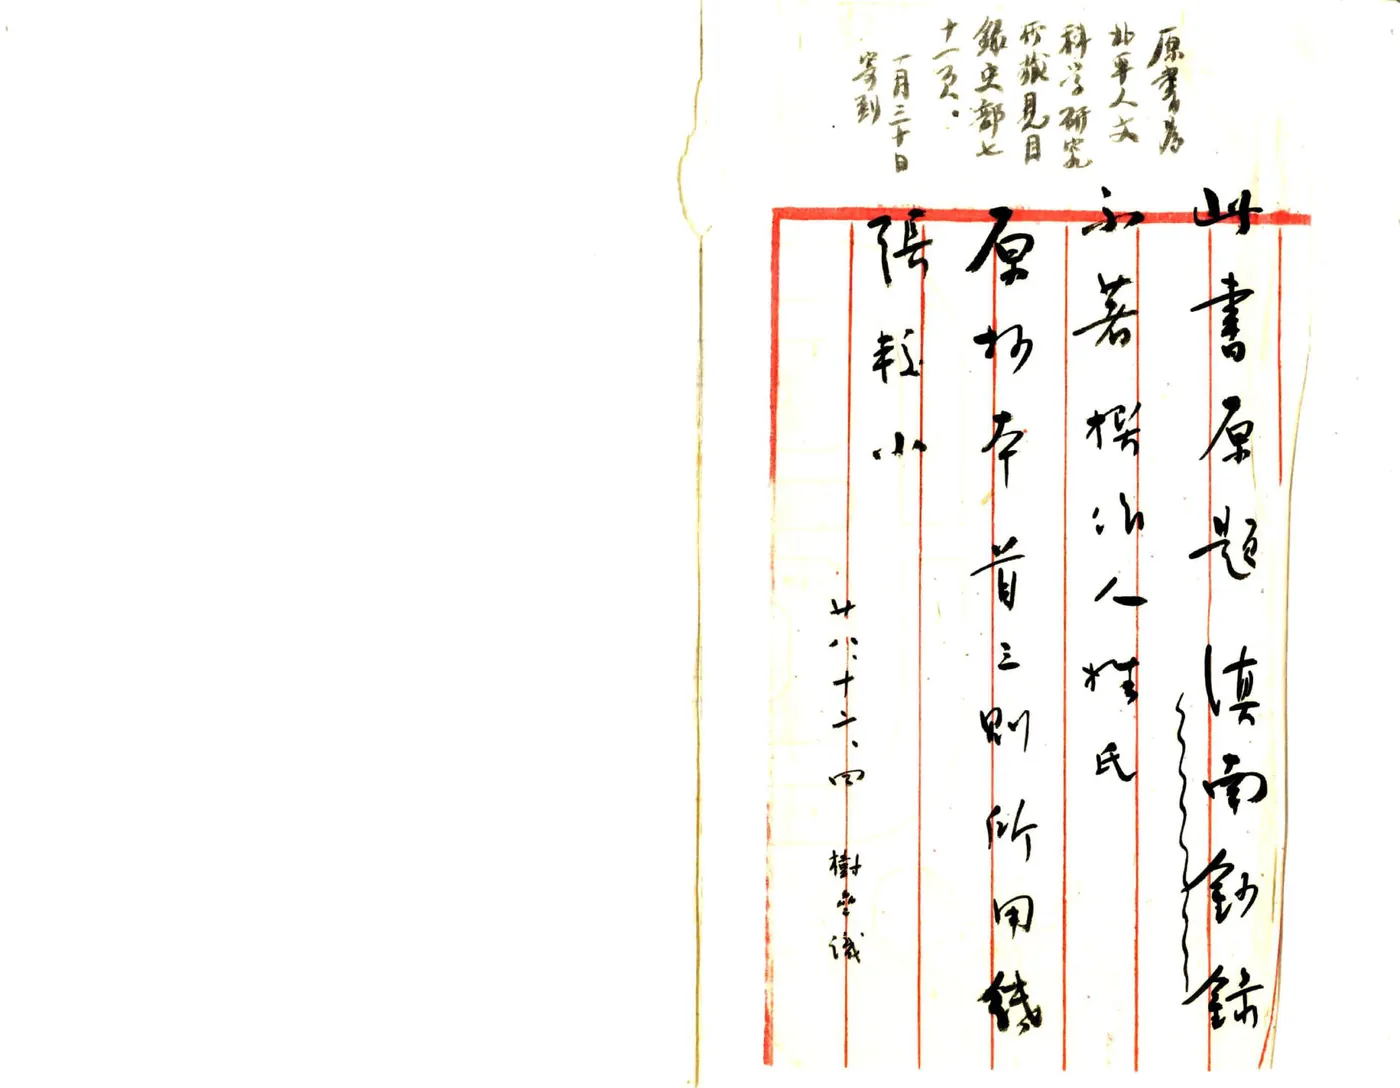 原書為
北平人文
科学研究
所藏見目
錄史部七
十一頁。
一月三十日
寄到
此書原題滇南鈔錄
不著撰作人姓氏
原抄本首三則所用紙
張較小
廿八、十二、四 樹 識